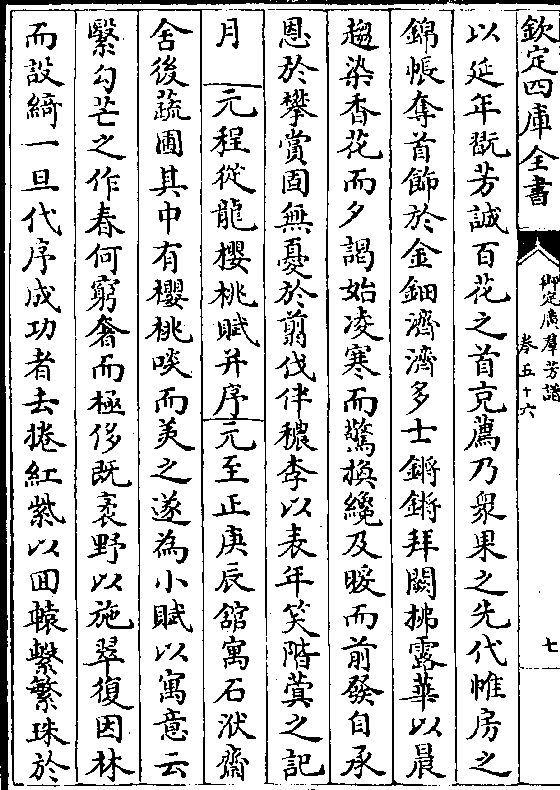 欽定四庫全書
御定廣群芳譜
卷五十六
七
以延年既芳誠百花之首克薦乃衆果之先代帷房之
錦帳奪首飾於金鈿濟濟多士鏘鏘拜闕拂露華以晨
趨染香花而夕謁始凌寒而驚換纔及暖而前發自承
恩於攀賞固無憂於翦伐伴穠李以表年笑階蓂之記
月　元程從龍櫻桃賦并序元至正庚辰舘寓石洑齋
舍後蔬圃其中有櫻桃啖而美之遂為小賦以寓意云
繄勾芒之作春何窮奢而極侈既袤野以施翠復因林
而設綺一旦代序成功者去捲紅紫以囬轅繫繁珠於